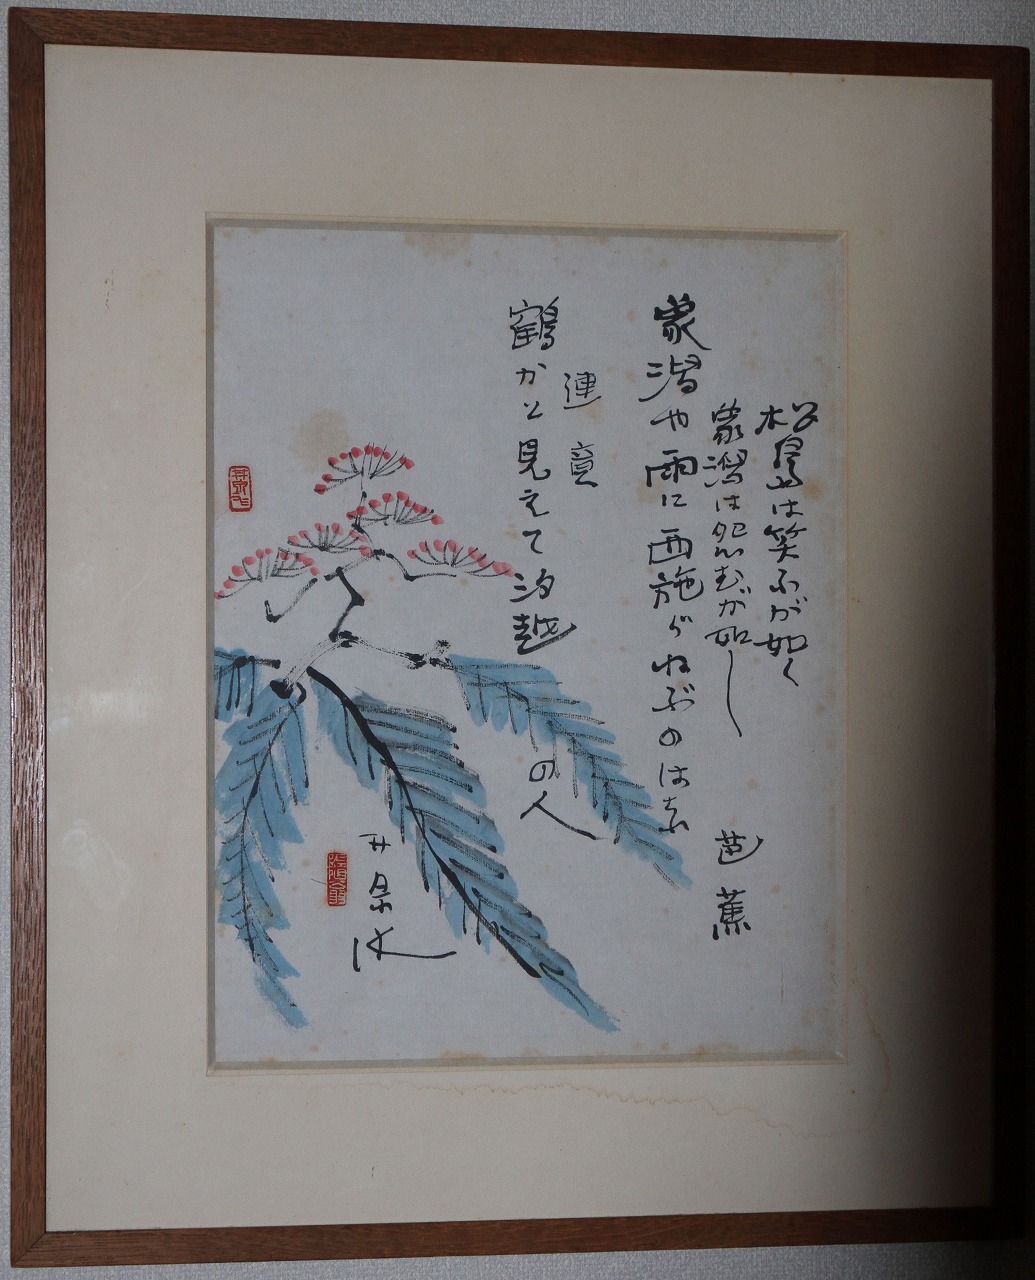 松島は笑ふが如く
象潟は怨むが如し
象潟や雨に西施がねぶのはな
芭蕉
連
鶴かと見えて汐越の人
井泉水